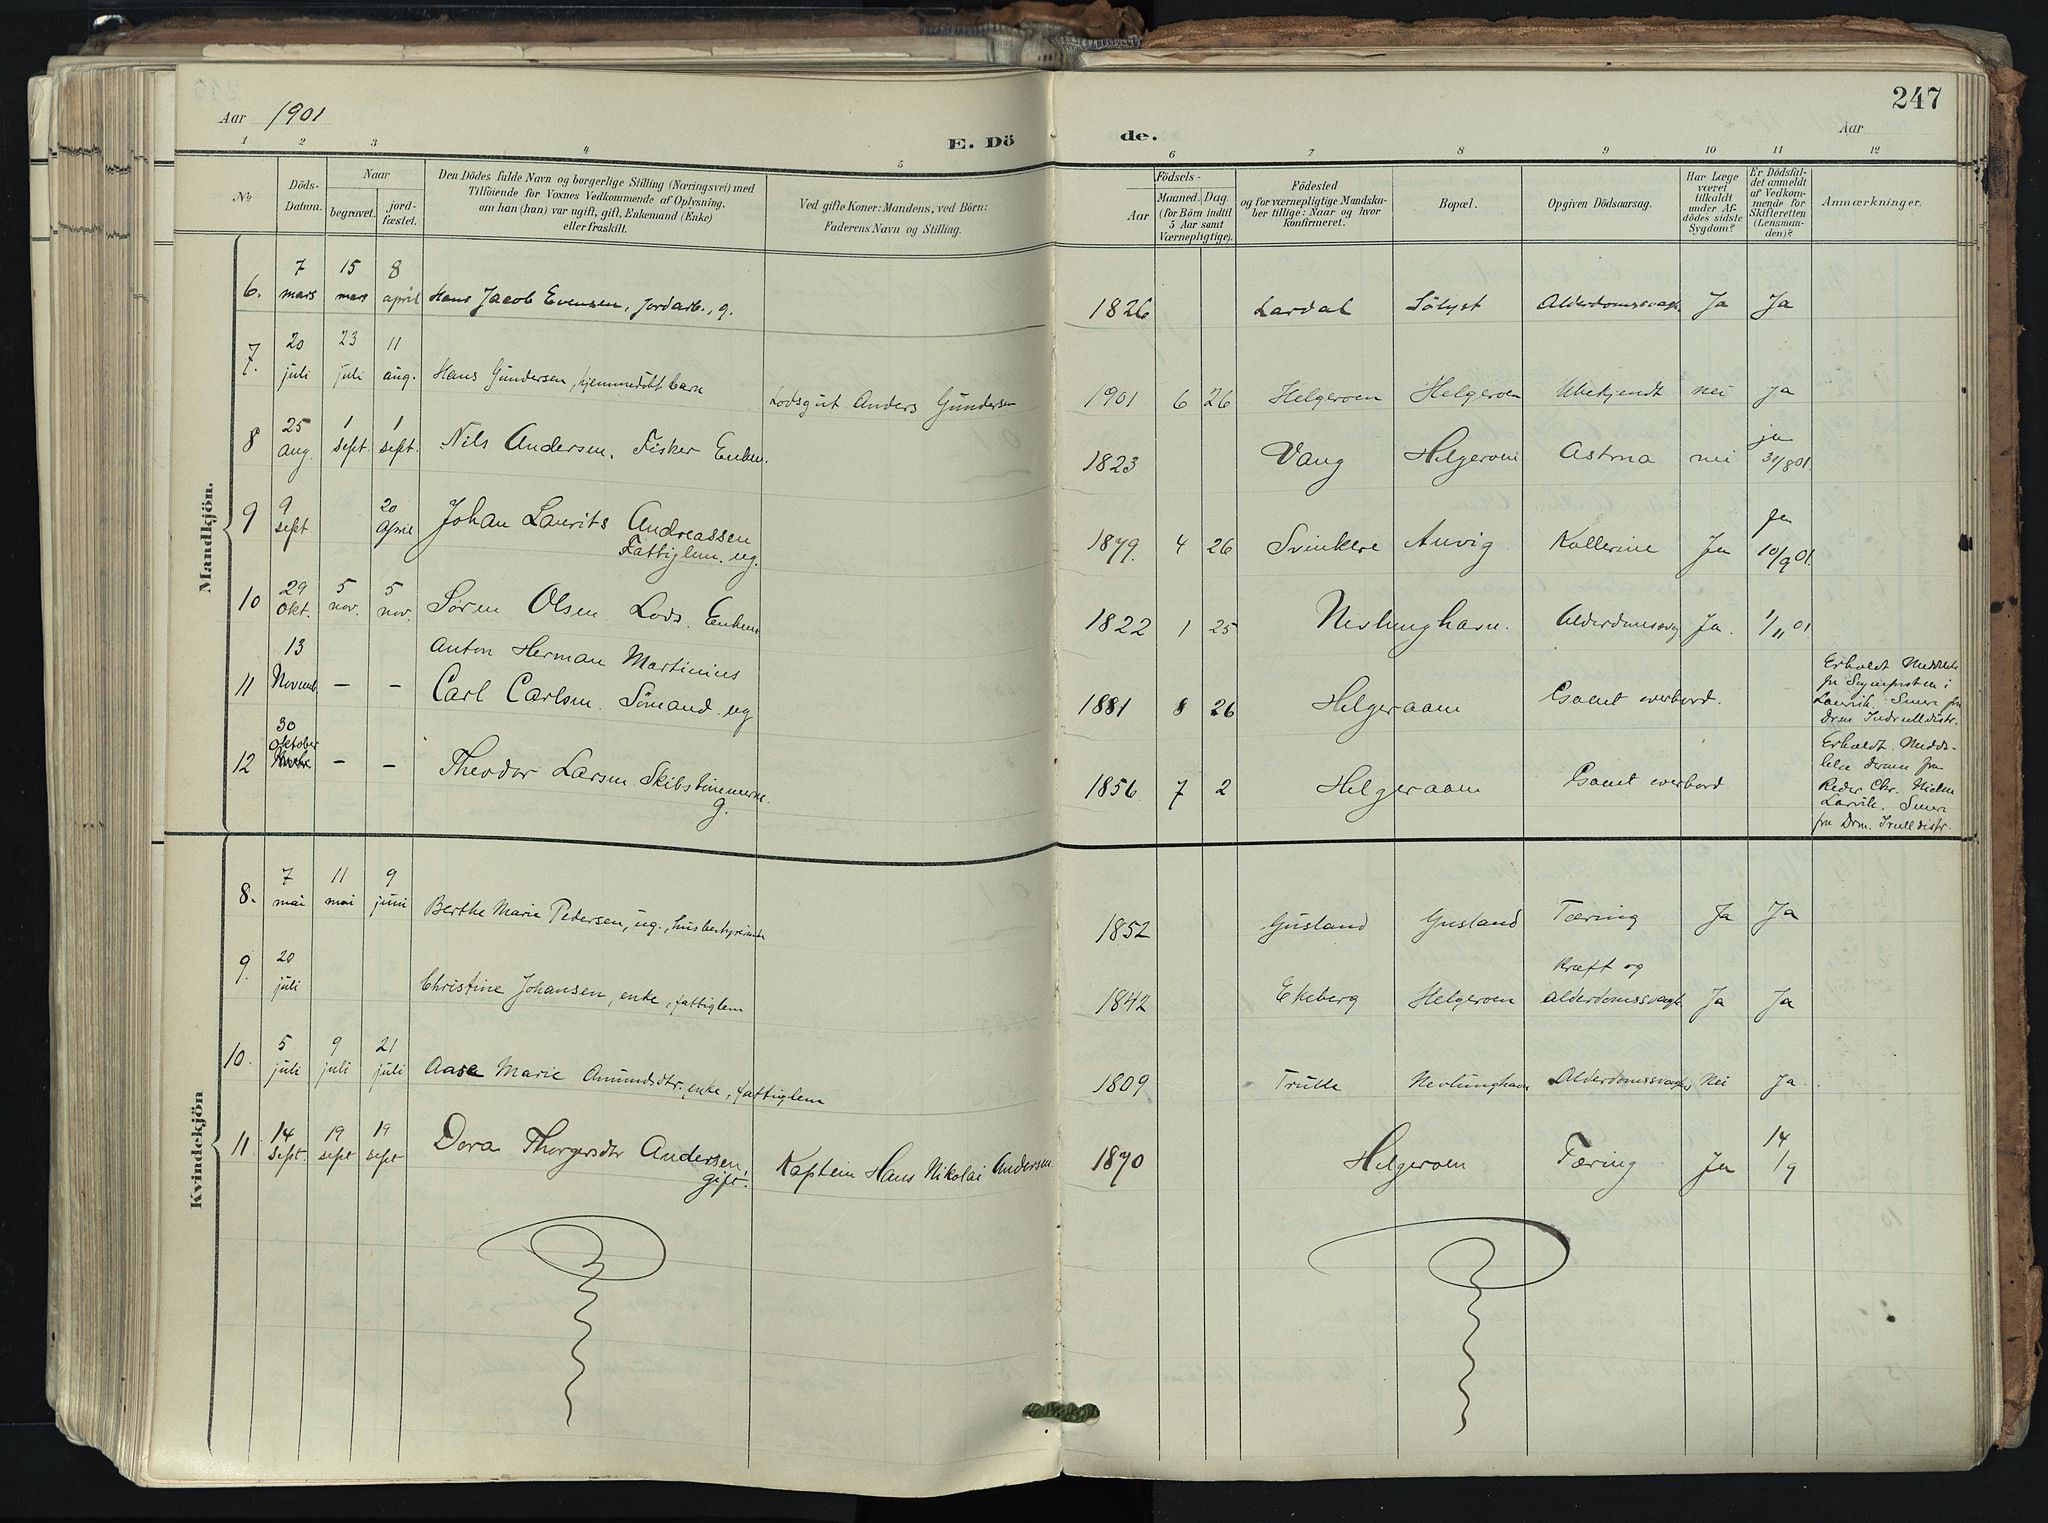 Aar 1901
247
E. Dö de.
Aar
1 2 3 4 5 6 7 8 9 10 11 12
No
Döds-Datum.
Naar
begravet.
jord-fæstet.
Den Dödes fulde Navn og borgerlige Stilling (Næringsvei) med
Tilföiende for Voxnes Vedkommende af Oplysning,
om han (hun) var ugift, gift, Enkemand (Enke)
eller fraskilt.
Ved gifte Koner: Mandens, ved Börn:
Faderens Navn og Stilling.
Födsels-
Aar
Maaned. Dag.
(for Börn indtil
5 Aar samt
Værnepligtige).
Födested
og for værnepligtige Mandska-
ber tillige: Naar og hvor
konfirmeret.
Bopæl.
Opgiven Dödsaarsag.
Har Læge
været
tilkaldt
under Af-
dödes sidste
Sygdom?
Er Dödsfal-
det anmeldt
af Vedkom-
mende for
Skifteretten
(Lensman-
den)?
Anmærkninger.
Mandkjön.
6. 7 mars 15 mars 8 april Hans Jacob Evensen, Jordarb., g. 1826 Lardal Sölyst Alderdomssvagh. Ja Ja
7. 20 juli 23 juli 11 aug. Hans Gundersen, hjemmedöbt barn Lodsgut Anders Gundersen 1901 6 26 Helgeroen Helgeroen Ubekjendt nei Ja
8 25 Aug. 1 sept. 1 sept. Nils Andersen. Fisker Enkem. 1823 Vang Helgeroen Astma nei ja 31/8 01.
9 9 sept. 20 April Johan Laurits Andreassen
Fattiglem. ug. 1879. 4 26 Anvig Ja 10/9 01.
10 29 Okt. 5 nov. 5 nov. Sören Olsen. Lods. Enkem 1822 1 25 Nevlunghavn. Ja. 1/11 01
11 13 Novemb. - - Anton Herman Martinius
Carl Carlsen. Sömand. ug 1881 8 26 Helgeraaen overbord. Erholdt
12 30 Oktober - - Theodor Larsen. Skibstimmerm.
g. 1856 7 2 Helgeraaen overbord Erholdt Medde-
Reder Chr. Nielsen
Larvik.
Kvindekjön
8. 7 mai 11 mai 9 juni Berthe Marie Pedersen, ug., husbestyrerinde 1852 Gusland Gusland Tæring Ja Ja
9. 20 juli Christine Johansen, enke, fattiglem 1842 Ekeberg Helgeroen Kræft og
alderdomssvagh. Ja Ja
10. 5 juli 9 juli 21 juli Aase Marie Amundsdtr. enke, fattiglem 1809 Trulle Nevlunghavn Alderdomssvaghed Nei Ja.
11 14 sept. 19 sept 19 sept Dora Thorgersdtr Andersen,
gift. Kaptein Hans Nikolai Andersen 1870 Helgeroen Tæring. Ja 14/9